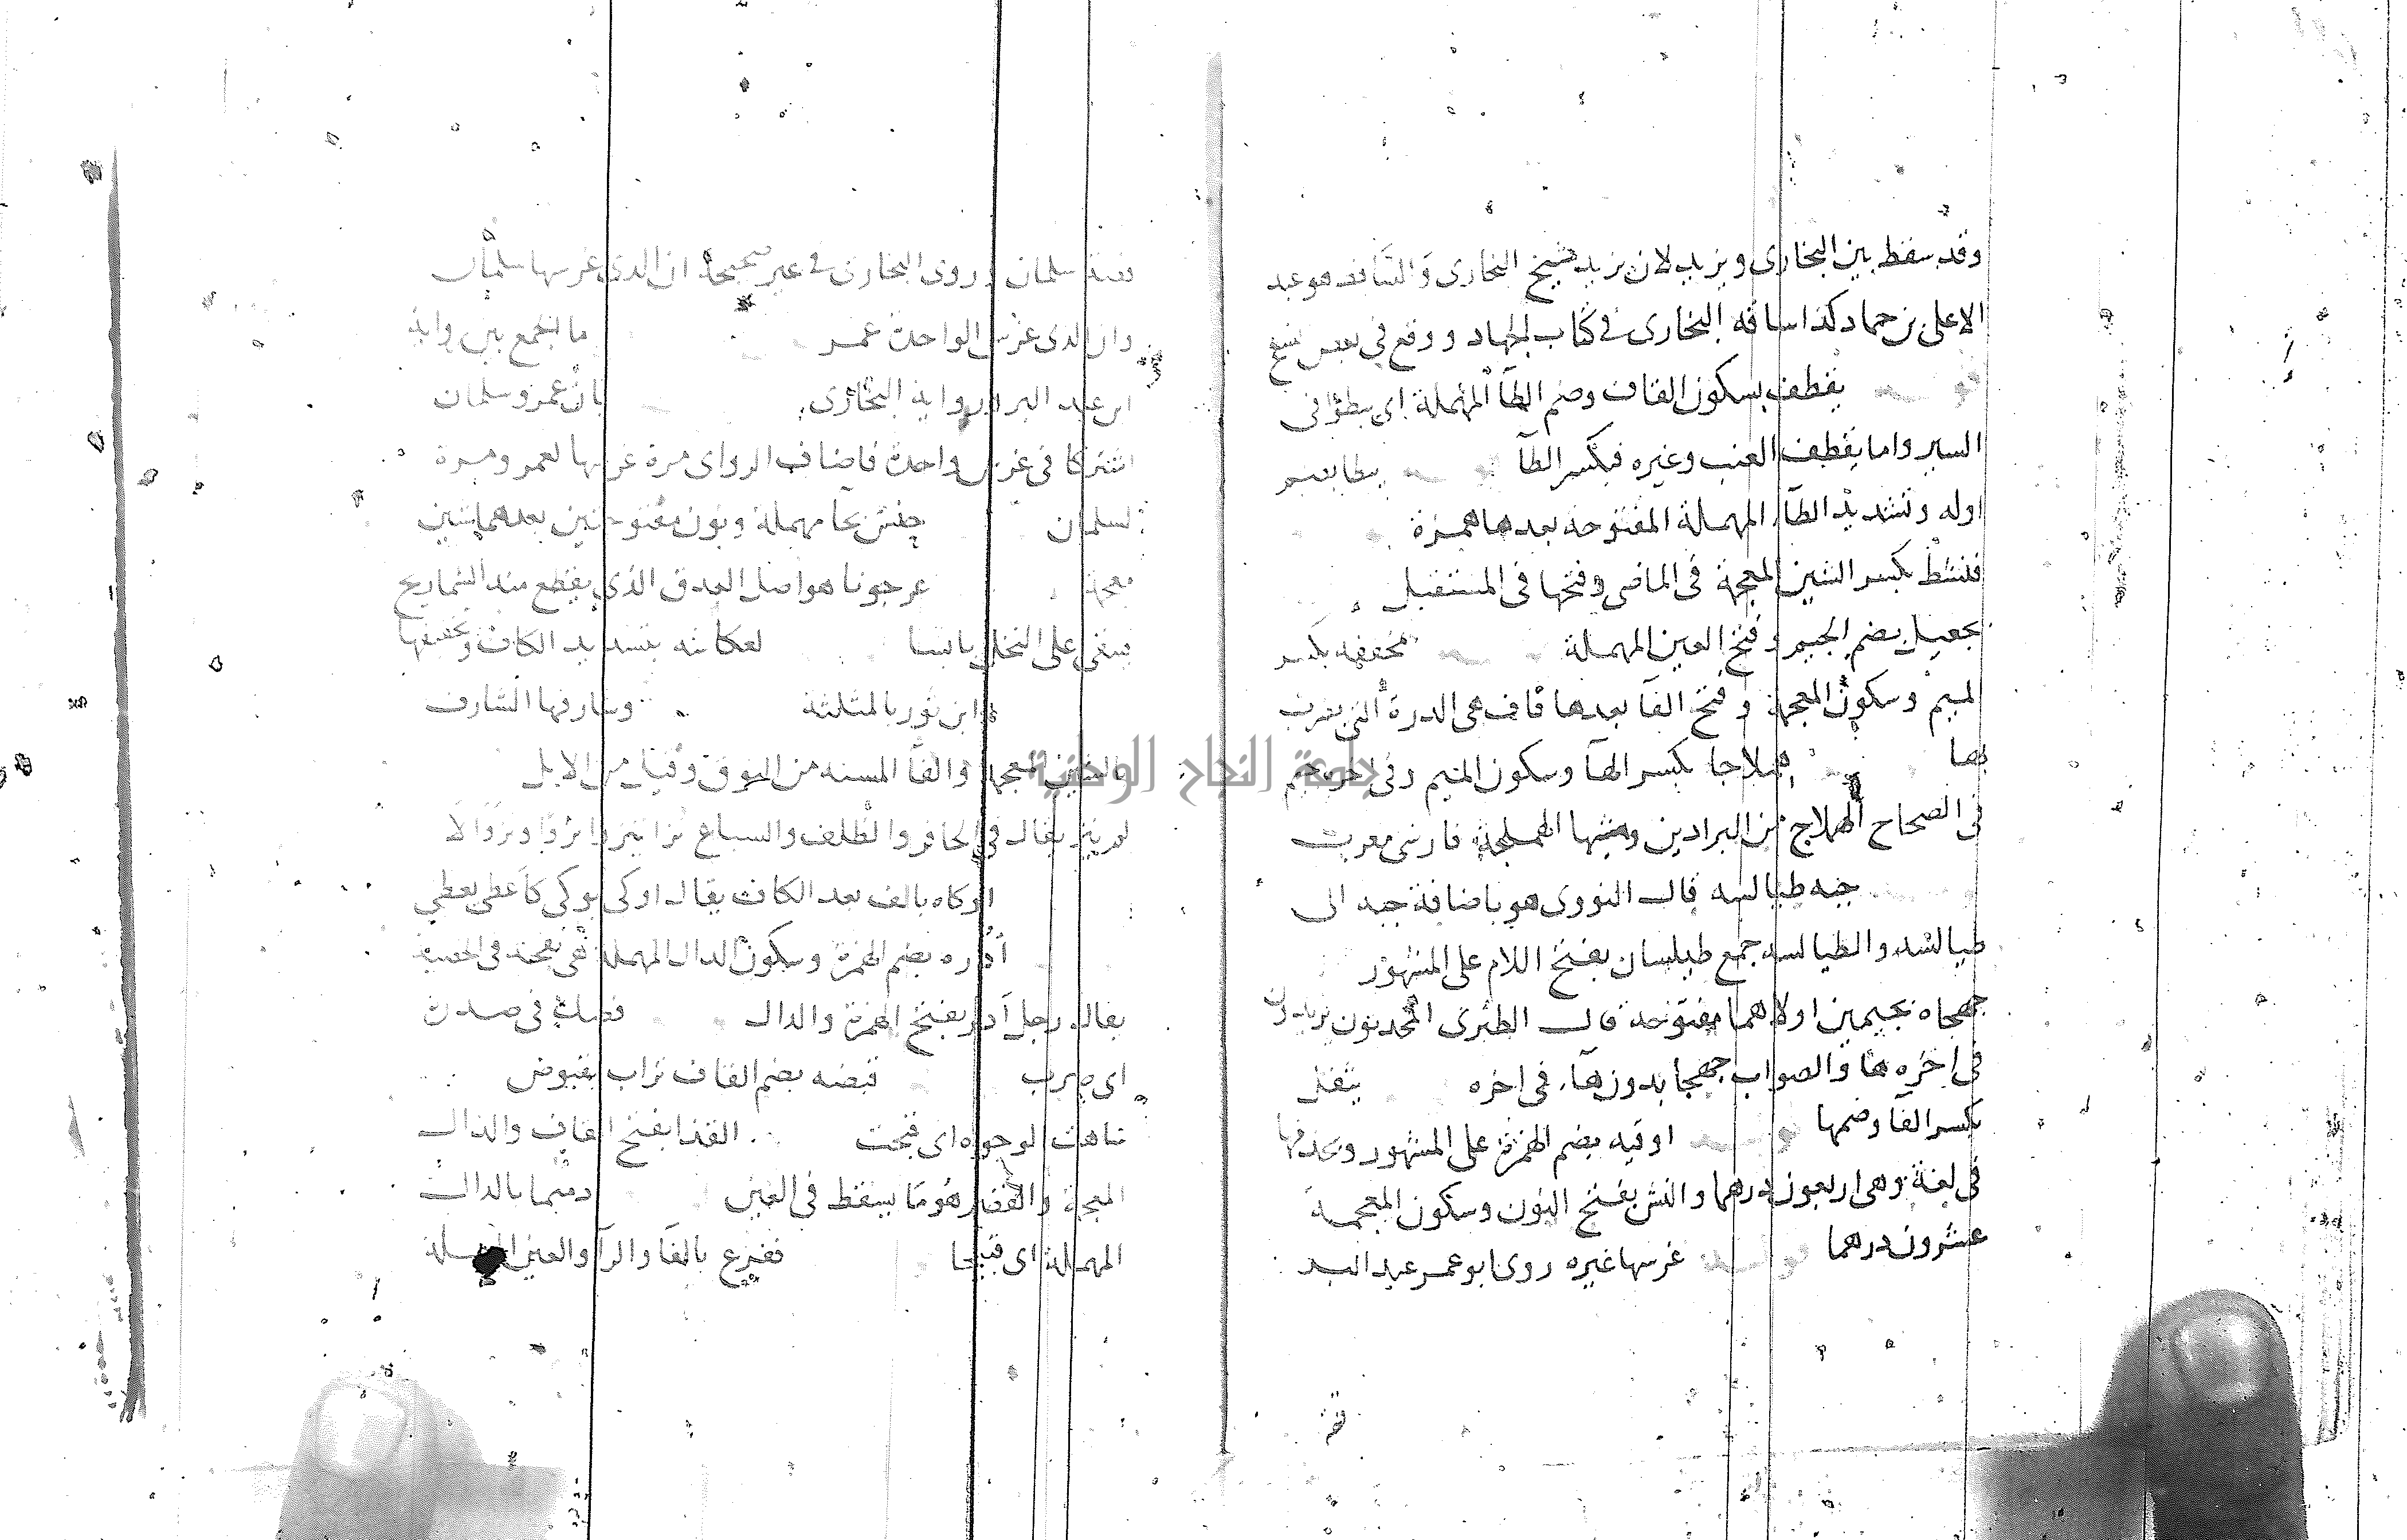 وقد سقط بين البخارى ويزيد لان يزيد شيخ البخارى والساقط هو عبد
الاعلى بن حماد كذا ساقه البخارى فى كتاب الجهاد ووقع فى بعض نسخ
يقطف بسكون القاف وضم الطآ المهملة اى يبطؤ فى
السير واما يقطف العنب وغيره فبكسر الطآ
اوله وتشديد الطآ المهملة المفتوحة بعدها همزة
فنشط بكسر الشين المعجمة فى الماضى وفتحها فى المستقبل
بجعيل بضم الجيم وفتح العين المهملة مخفقه بكسر
الميم وسكون المعجمة وفتح الفآ بعدها قاف هى الدرة التى يضرب
بها هملاجا بكسر الهآ وسكون الميم وفى اخره جيم
فى الصحاح الهملاج من البرادين ومشيها الهملجة فارسى معرب
جبه طيالسه قال النووى هو باضافة جبه الى
طيالسه والطيالسه جمع طيلسان بفتح اللام على المشهور
جهجاه بجيمين اولاهما مفتوحة قال الطبرى المحدثون يزيدون
فى اخره ها والصواب جهجا بدون هآ فى اخره يتفل
بكسر الفآ وضمها اوقيه بضم الهمزة على المشهور وبحذفها
فى لغة وهى اربعون درهما والنش بفتح النون وسكون المعجمة
عشرون درهما غرسها غيره روى ابو عمر عبد البر
قصة سلمان وروى البخارى فى غير صحيحه ان الذى غرسها سلمان
وان الذى غرس الواحدة عمر ما الجمع بين رواية
ابن عبد البر ورواية البخارى بان عمر وسلمان
اشتركا فى غرس واحدة فاضاف الراوى مرة غرسها لعمر ومرة
لسلمان حنش بحا مهملة ونون مفتوحتين بعدهما شين
معجمة عرجونا هو اصل العدق الذى يقطع منه الشماريخ
فيبقى على النخل يابسا لعكاشه بتشديد الكاف وتخفيفها
ابن ثور بالمثلثة وشارفها الشارف
بالشين المعجمة والفآ المسنه من النوق وقيل من الابل
لم ينز يقال فى الحافر والظلف والسباع نزا ينزوا نزوا ونزوالا
اوكاه بالف بعد الكاف يقال اوكى يوكى كاعطى يعطى
أدره بضم الهمزة وسكون الدال المهملة هى نفخة فى الخصية
يقال رجل آدر بفتح الهمزة والدال فصك فى صدره
اى ضرب قبضه بضم القاف تراب مقبوض
شاهت الوجوه اى قبحت القذا بفتح القاف والدال
المعجمة هو ما يسقط فى العين دميما بالدال
المهملة اى قبيحا ففرع بالفآ والرآ والعين المهملة